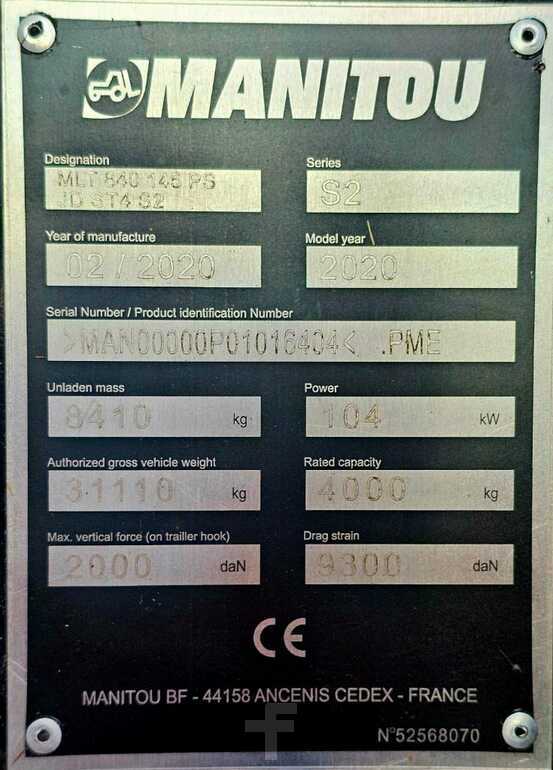 MANITOU
Designation Series
MLT 840 145 PS S2
JD ST4 S2
Year of manufacture Model year
02 / 2020 2020
Serial Number / Product identification Number
>MAN00000P01016404< .PME
Unladen mass Power
8410 kg 104 kW
Authorized gross vehicle weight Rated capacity
31110 kg 4000 kg
Max. vertical force (on trailler hook) Drag strain
2000 daN 9300 daN
CE
MANITOU BF - 44158 ANCENIS CEDEX - FRANCE
N°52568070